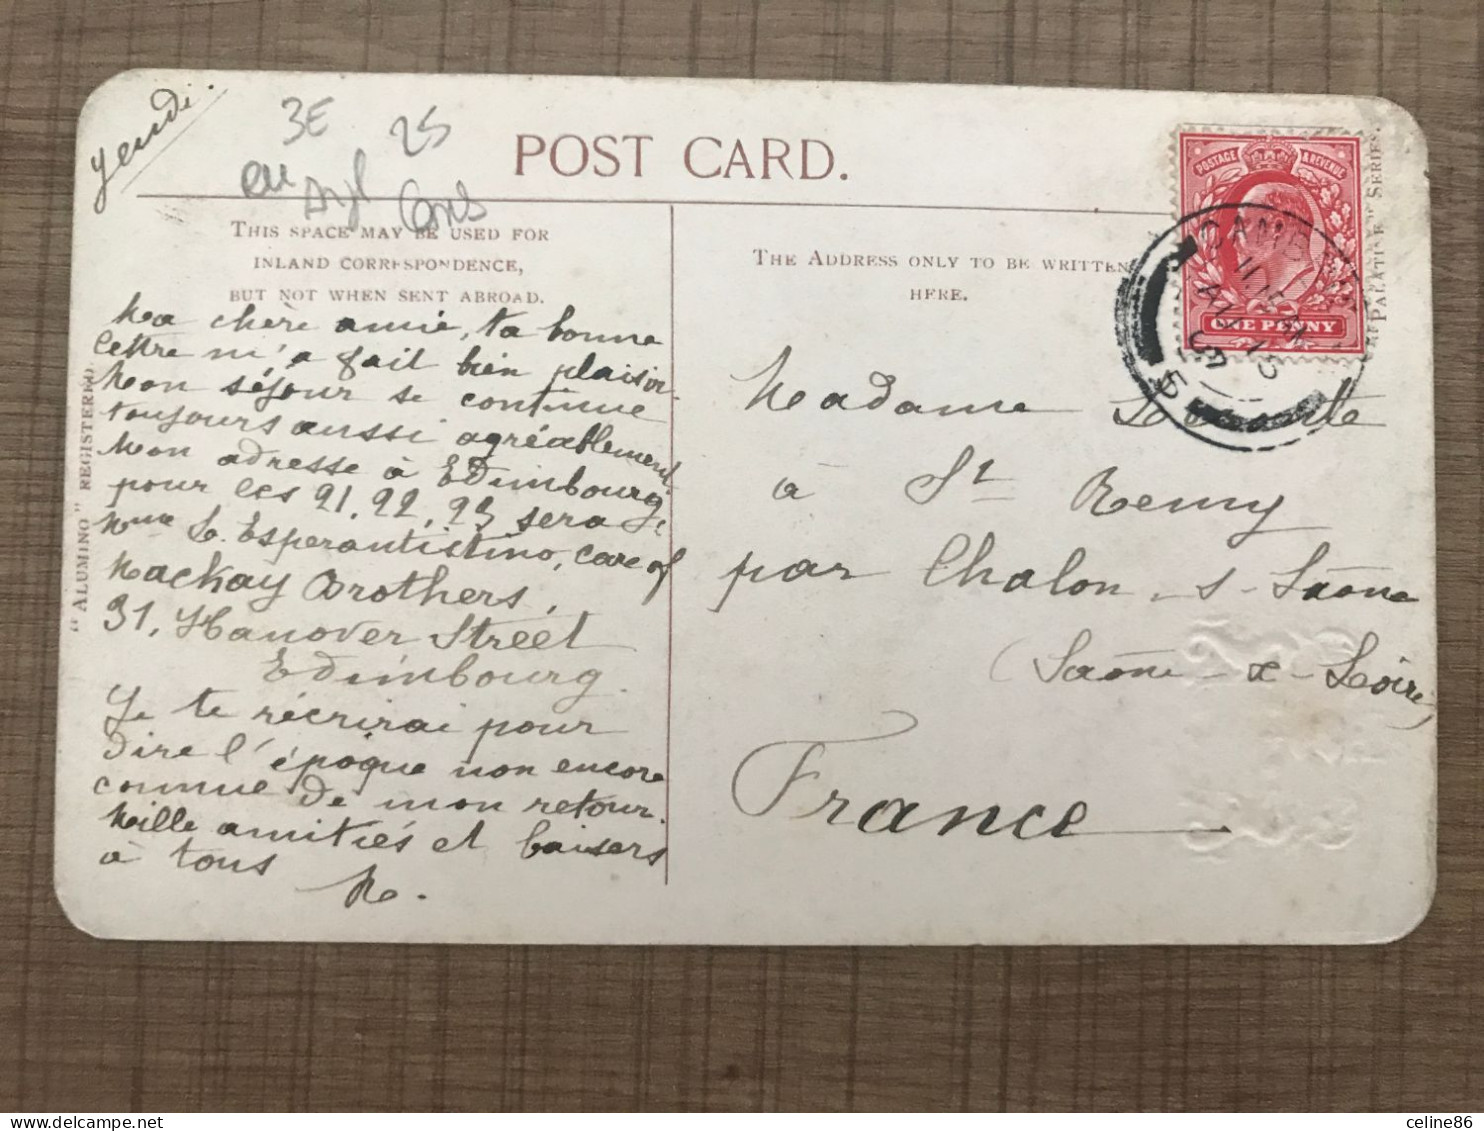 jeudi.
3E
25
en
POST CARD.
THIS SPACE MAY BE USED FOR
INLAND CORRESPONDENCE,
BUT NOT WHEN SENT ABROAD.
Ma chère amie, ta bonne
lettre m'a fait bien plaisir.
Mon séjour se continue
toujours aussi agréablement.
Mon adresse à Edimbourg,
pour les 21, 22, 23 sera
Mme L. Esperantistino, care of
Mackay Brothers,
31, Hanover Street
Edimbourg.
Je te récrirai pour
dire l'époque non encore
connue de mon retour.
Mille amitiés et baisers
à tous
M.
"ALUMINO" REGISTERED.
THE ADDRESS ONLY TO BE WRITTEN
HERE.
POSTAGE & REVENUE
ONE PENNY
PALATINE SERIES.
CAMB
11 15
AU 15
07
Madame
à St Remy
par Chalon-s-Saône
(Saône-&-Loire)
France
celine86